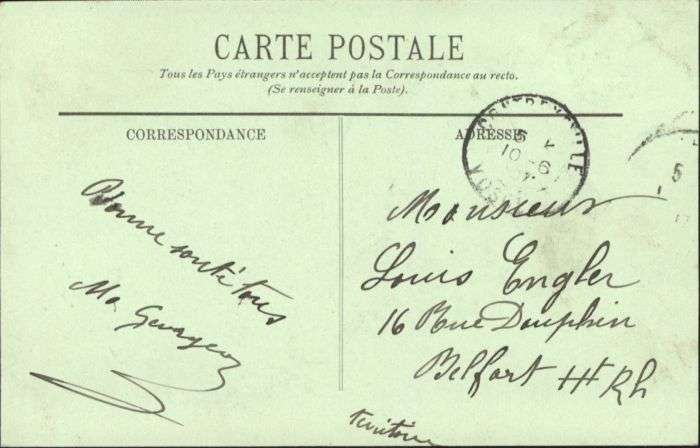 CARTE POSTALE
Tous les Pays étrangers n'acceptent pas la Correspondance au recto.
(Se renseigner à la Poste).
CORRESPONDANCE
ADRESSE
CONTREXEVILLE
Bonne santé tous
Monsieur
Louis Engler
16 Rue Dauphin
Belfort Ht Rh
territoire